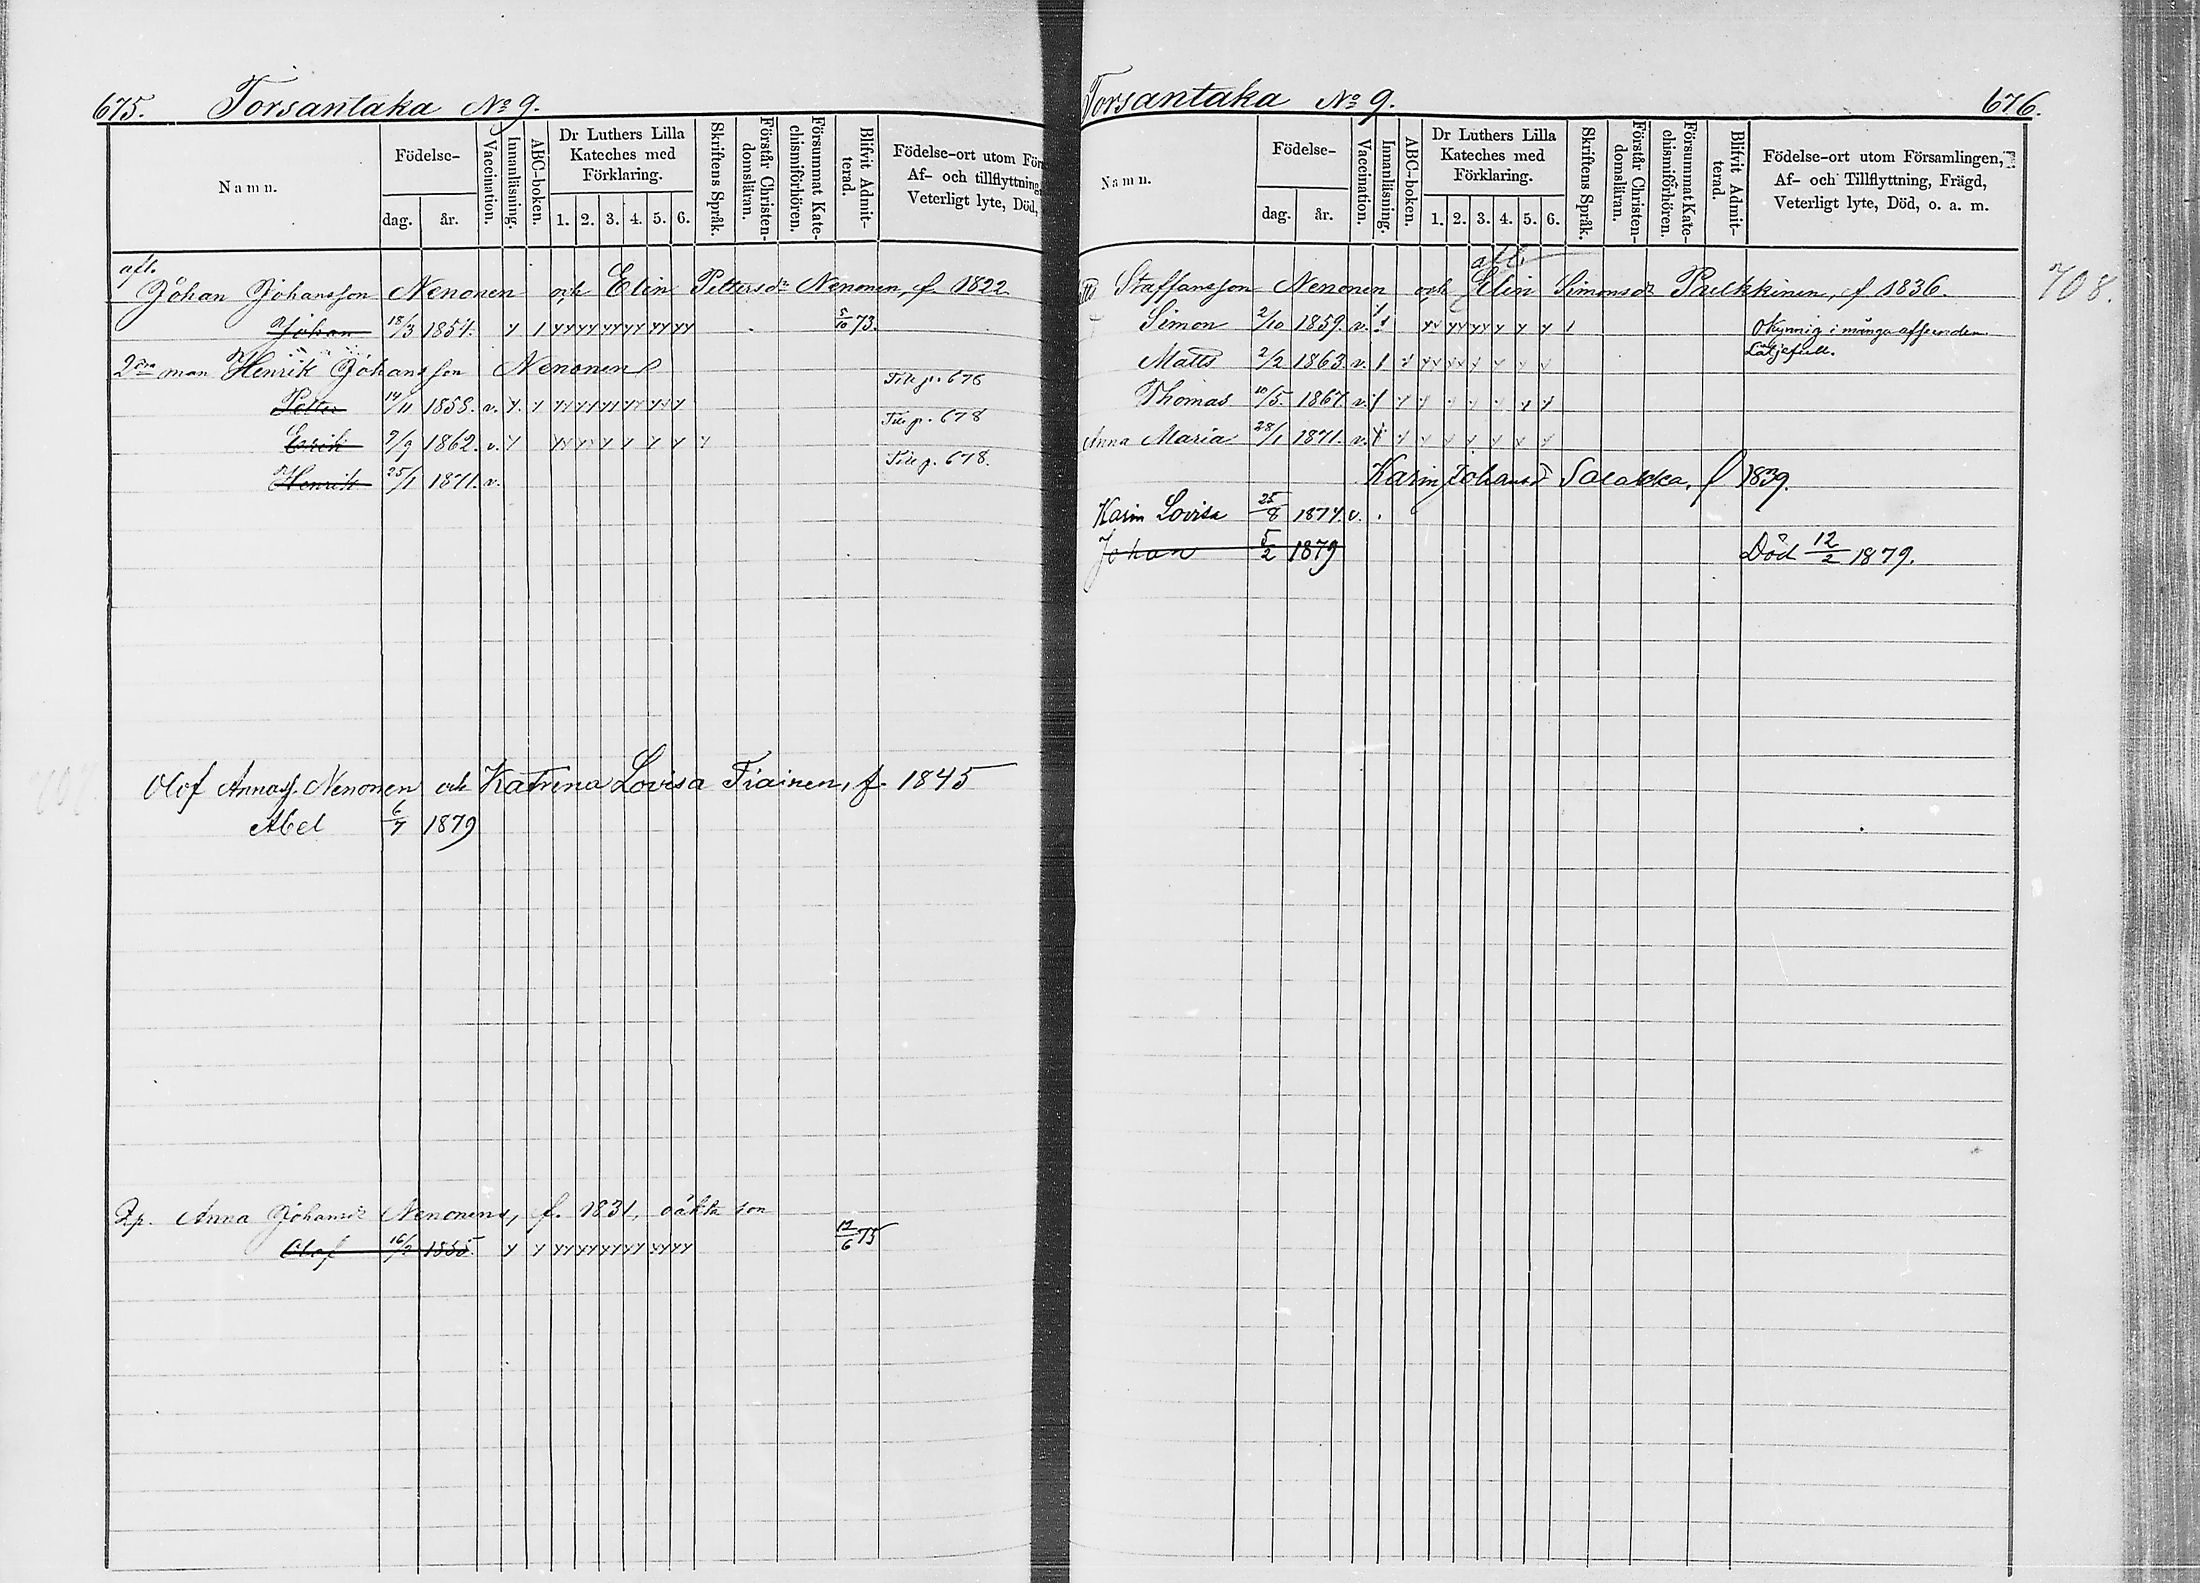 675. Torsantaka No 9.
Namn.
Födelse-
dag.
år.
Vaccination.
Innanläsning.
ABC-boken.
Dr Luthers Lilla
Kateches med
Förklaring.
1. 2. 3. 4. 5. 6.
Skriftens Språk.
Förstår Christen-
domsläran.
Försummat Kate-
chismiförhören.
Blifvit Admit-
terad.
Födelse-ort utom För
Af- och tillflyttning
Veterligt lyte, Död,
afl.
Johan Johansson Nenonen och Elin Pettersdr Nenonen, f 1822
Johan 18/3 1854. 5/10 73.
2dra man Henrik Johansson Nenonen
Petter 14/11 1858. v. Till p. 676
Erik 9/9 1862. v. Till p. 678
Henrik 25/1 1871. v. Till p. 678.
Olof Annas. Nenonen och Katrina Lovisa Tiainen, f. 1845
Abel 6/7 1879
Zp. Anna Johansdr Nenonens, f. 1831, oäkta son
Olof 16/2 1855. 12/6 75
Torsantaka No 9. 676.
Namn.
Födelse-
dag.
år.
Vaccination.
Innanläsning.
ABC-boken.
Dr Luthers Lilla
Kateches med
Förklaring.
1. 2. 3. 4. 5. 6.
Skriftens Språk.
Förstår Christen-
domsläran.
Försummat Kate-
chismiförhören.
Blifvit Admit-
terad.
Födelse-ort utom Församlingen,
Af- och Tillflyttning, Frägd,
Veterligt lyte, Död, o. a. m.
708.
afl.
Staffansson Nenonen och Elin Simonsdr Pulkkinen, f 1836.
Simon 2/10 1859. v. Okynnig i många afseenden
Matts 2/2 1863. v.
Thomas 10/5 1867. v.
Anna Maria 28/1 1871. v.
Karin Johansd Salakka, f 1839.
Karin Lovisa 25/8 1874. v.
Johan 5/2 1879 Död 12/2 1879.